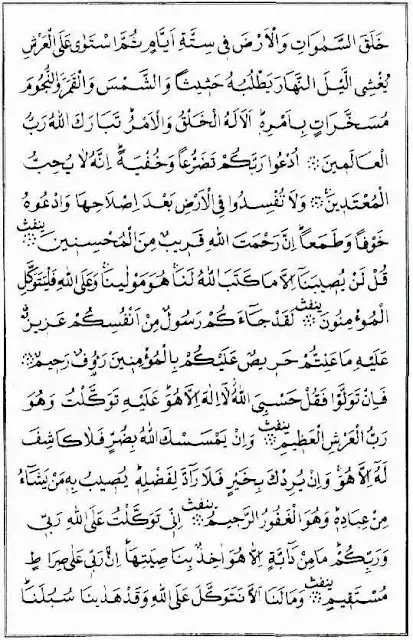 خَلَقَ السَّمٰوَاتِ وَالْاَرْضَ فٖى سِتَّةِ اَيَّامٍ ثُمَّ اسْتَوٰى عَلَى الْعَرْشِ
يُغْشِى الَّيْلَ النَّهَارَ يَطْلُبُهُ حَثٖيثًا وَالشَّمْسَ وَالْقَمَرَ وَالنُّجُومَ
مُسَخَّرَاتٍ بِاَمْرِهٖ اَلَا لَهُ الْخَلْقُ وَالْاَمْرُ تَبَارَكَ اللّٰهُ رَبُّ
الْعَالَمٖينَ ❊ اُدْعُوا رَبَّكُمْ تَضَرُّعًا وَخُفْيَةً اِنَّهُ لَا يُحِبُّ
الْمُعْتَدٖينَ ❊ وَلَا تُفْسِدُوا فِى الْاَرْضِ بَعْدَ اِصْلَاحِهَا وَادْعُوهُ
خَوْفًا وَطَمَعًا اِنَّ رَحْمَتَ اللّٰهِ قَرٖيبٌ مِنَ الْمُحْسِنٖينَ ❊ ينفث
قُلْ لَنْ يُصٖيبَنَا اِلَّا مَا كَتَبَ اللّٰهُ لَنَا هُوَ مَوْلٰينَا وَعَلَى اللّٰهِ فَلْيَتَوَكَّلِ
الْمُؤْمِنُونَ ❊ ينفث لَقَدْ جَاءَكُمْ رَسُولٌ مِنْ اَنْفُسِكُمْ عَزٖيزٌ
عَلَيْهِ مَا عَنِتُّمْ حَرٖيصٌ عَلَيْكُمْ بِالْمُؤْمِنٖينَ رَؤُفٌ رَحٖيمٌ ❊
فَاِنْ تَوَلَّوْا فَقُلْ حَسْبِىَ اللّٰهُ لَا اِلٰهَ اِلَّا هُوَ عَلَيْهِ تَوَكَّلْتُ وَهُوَ
رَبُّ الْعَرْشِ الْعَظٖيمِ ❊ ينفث وَاِنْ يَمْسَسْكَ اللّٰهُ بِضُرٍّ فَلَا كَاشِفَ
لَهُ اِلَّا هُوَ وَاِنْ يُرِدْكَ بِخَيْرٍ فَلَا رَادَّ لِفَضْلِهٖ يُصٖيبُ بِهٖ مَنْ يَشَاءُ
مِنْ عِبَادِهٖ وَهُوَ الْغَفُورُ الرَّحٖيمُ ❊ ينفث اِنّٖى تَوَكَّلْتُ عَلَى اللّٰهِ رَبّٖى
وَرَبِّكُمْ مَا مِنْ دَابَّةٍ اِلَّا هُوَ اٰخِذٌ بِنَاصِيَتِهَا اِنَّ رَبّٖى عَلٰى صِرَاطٍ
مُسْتَقٖيمٍ ❊ ينفث وَمَا لَنَا اَلَّا نَتَوَكَّلَ عَلَى اللّٰهِ وَقَدْ هَدٰينَا سُبُلَنَا